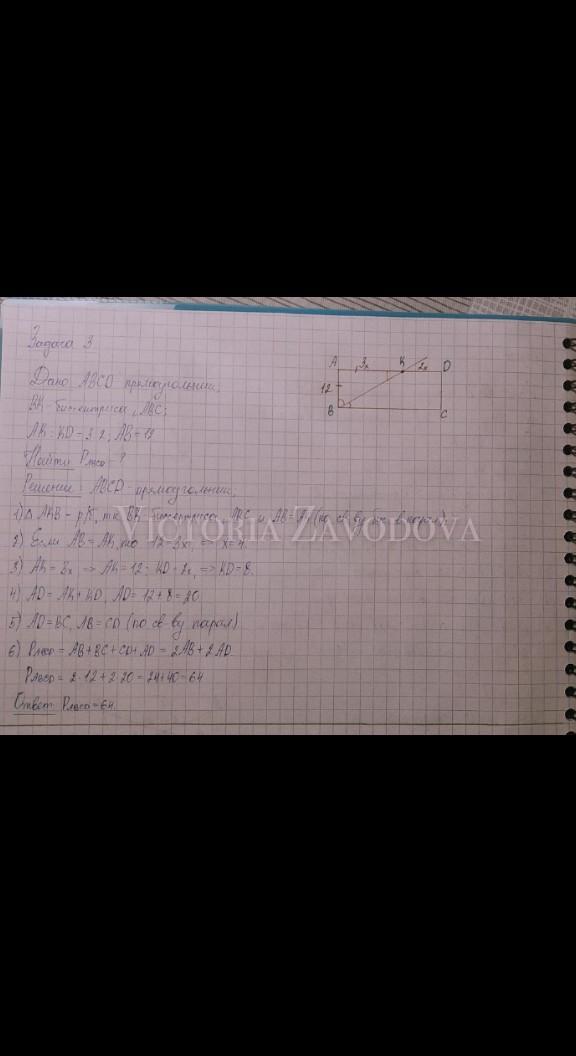 Задача 3
A 3x K 2x D
12
B C
Дано: ABCD прямоугольник;
BK - биссектриса ABC;
AK : KD = 3:2; AB = 12
Найти: P_ABCD - ?
Решение: ABCD - прямоугольник;
1) Δ AKB - р/б, тк BK - биссектриса ABC и AB = AK (по св-ву бис. в парал.).
2) Если AB = AK, то 12 = 3x, => x = 4.
3) AK = 3x => AK = 12; KD = 2x, => KD = 8.
4) AD = AK + KD, AD = 12 + 8 = 20
5) AD = BC, AB = CD (по св-ву парал)
6) P_ABCD = AB + BC + CD + AD = 2AB + 2AD
P_ABCD = 2·12 + 2·20 = 24 + 40 = 64
Ответ: P_ABCD = 64.
VICTORIA ZAVODOVA